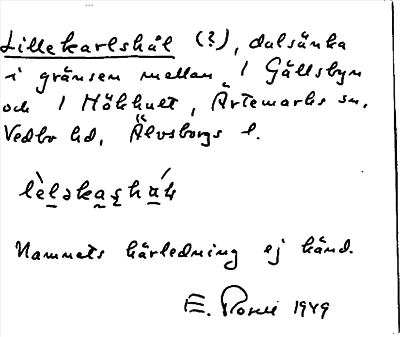 Lillekarlshål (?), dalsänka
i gränsen mellan 1 Gällsbyn
och 1 Hökhult, Ärtemarks sn,
Vedbo hd, Älvsborgs l.
Namnets härledning ej känd.
E. 1949